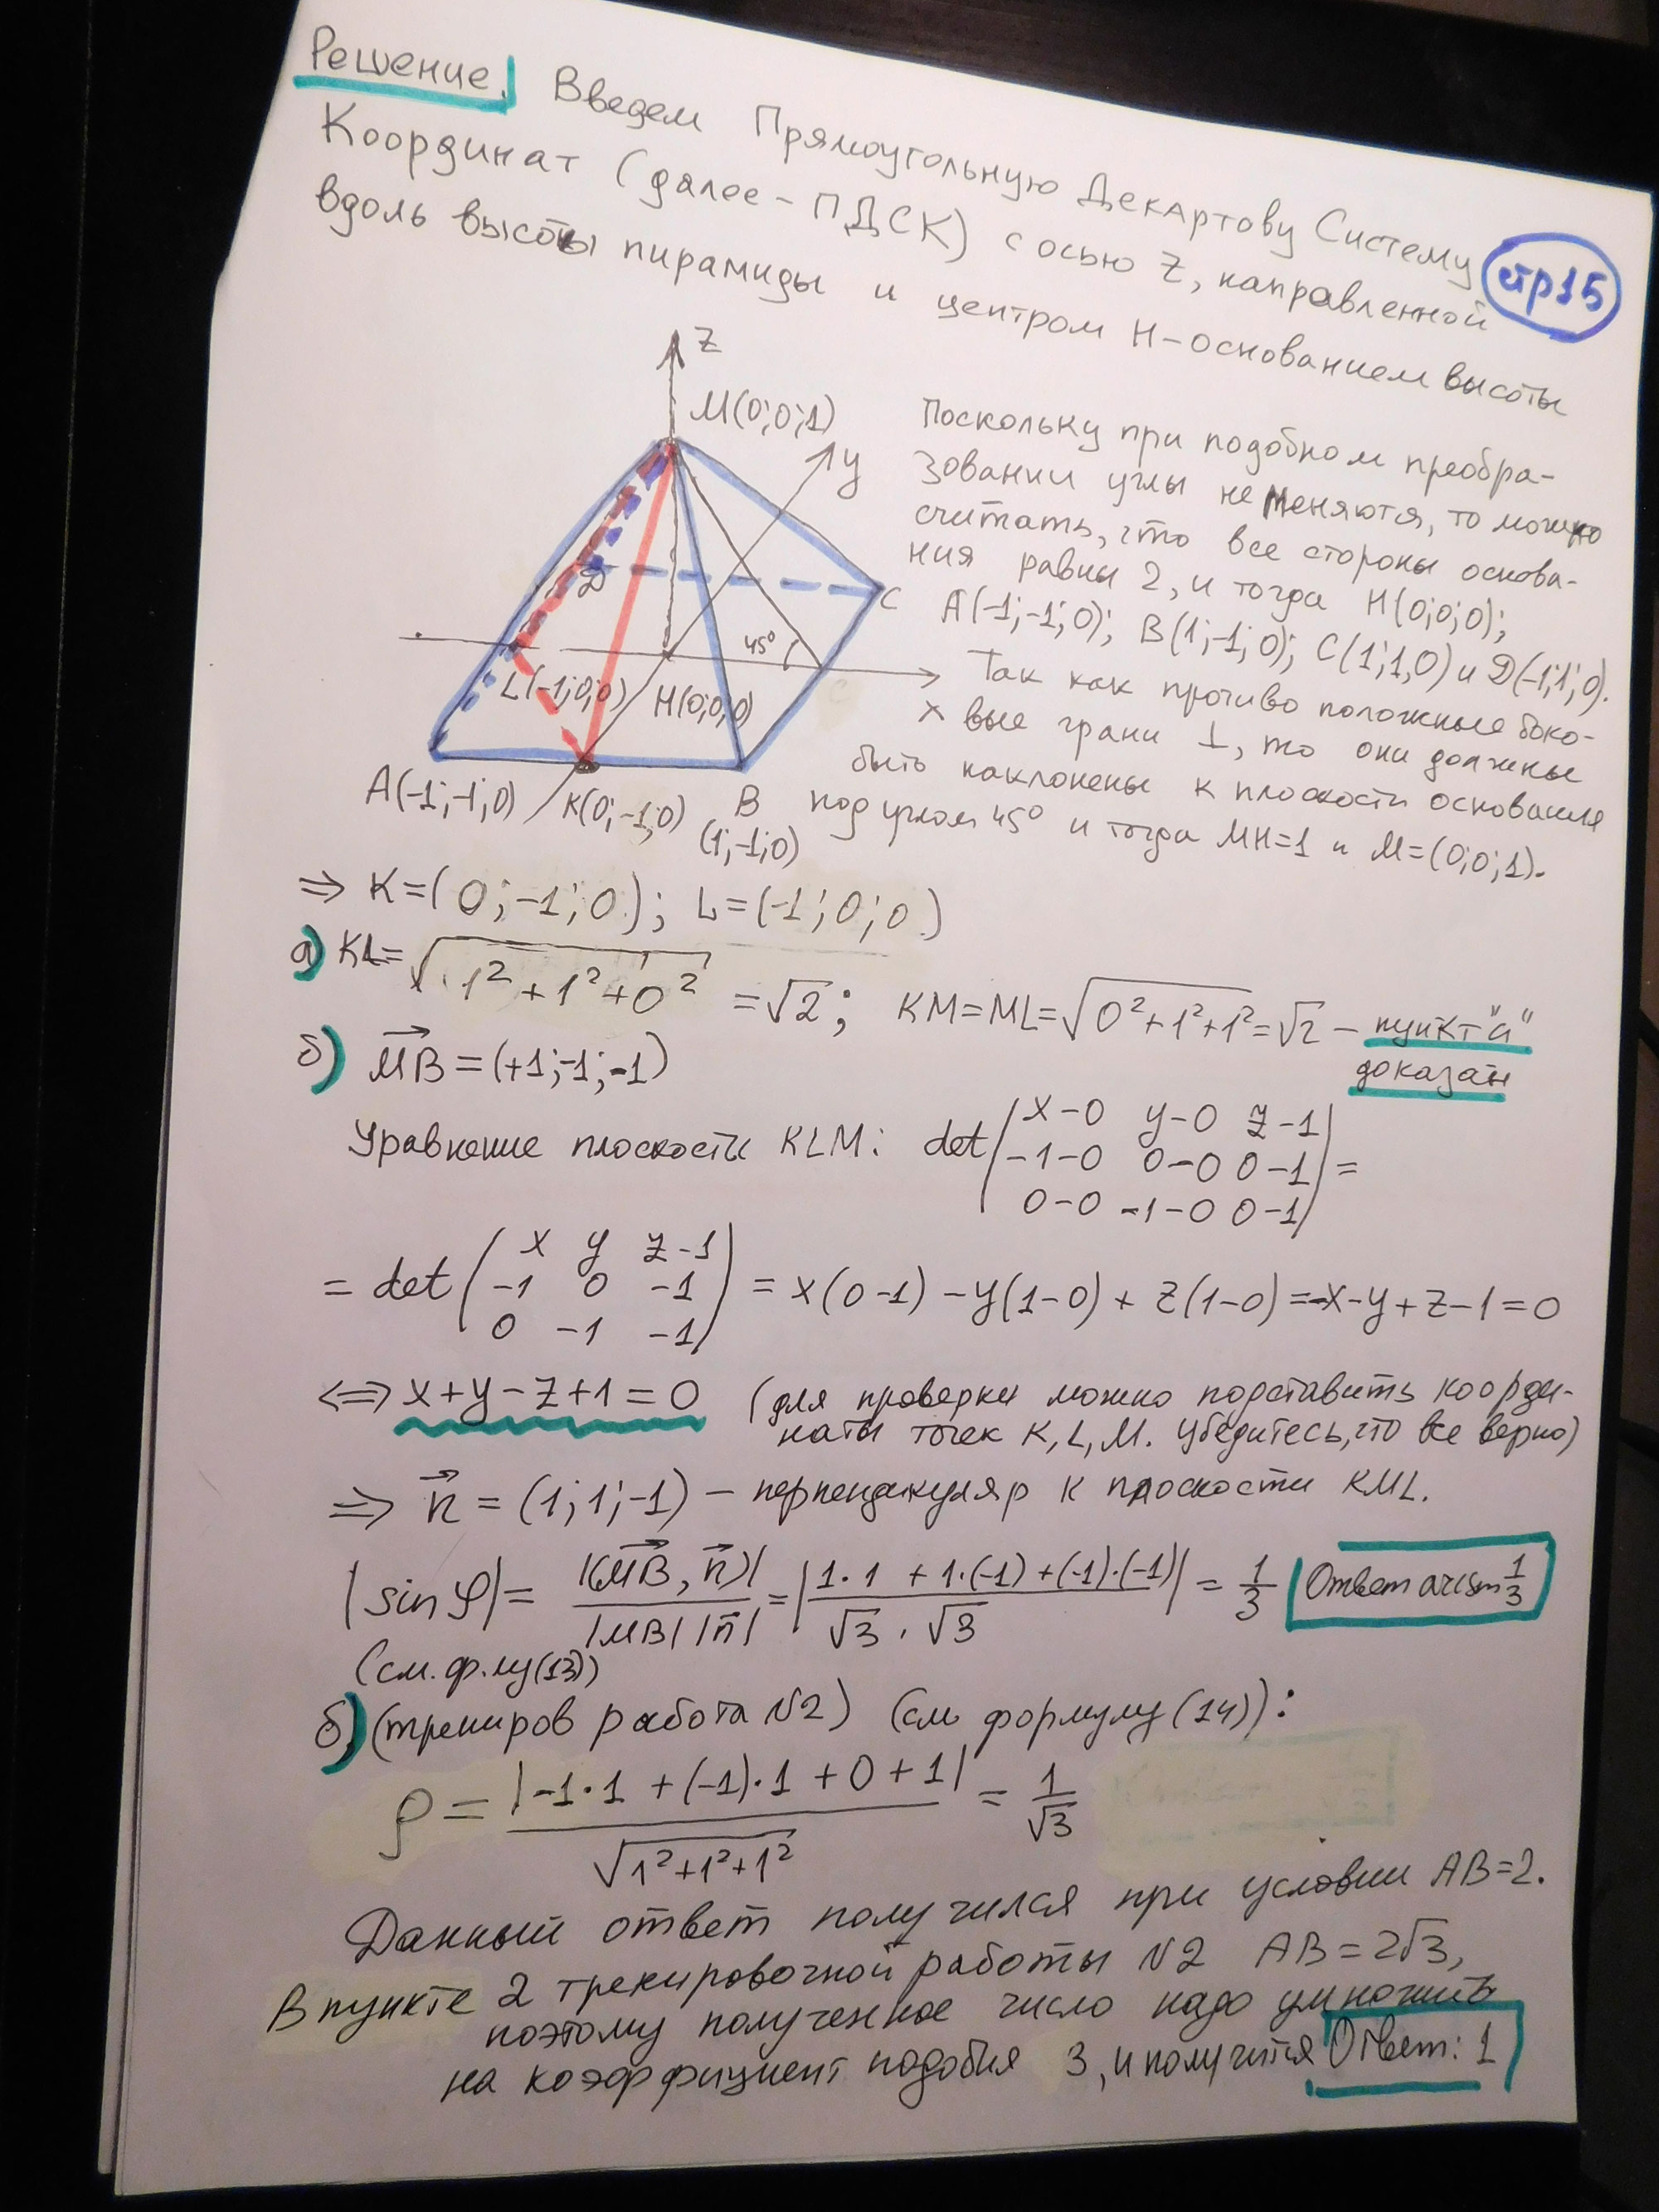 Решение. Введем Прямоугольную Декартову Систему
Координат (далее - ПДСК) с осью Z, направленной
вдоль высоты пирамиды и центром H - основанием высоты
стр 15
Z
M(0;0;1)
y
D
C
45°
L(-1;0;0)
H(0;0,0)
x
A(-1;-1;0)
K(0;-1;0)
B
(1;-1;0)
Поскольку при подобном преобра-
зовании углы не меняются, то можно
считать, что все стороны основа-
ния равны 2, и тогда H(0;0;0);
A(-1;-1;0); B(1;-1;0); C(1;1,0) и D(-1;1;0).
Так как противоположные боко-
вые грани ⊥, то они должны
быть наклонены к плоскости основания
под углом 45° и тогда MH=1 и M=(0;0;1).
=> K=(0;-1;0); L=(-1;0;0)
а) KL=√(1²+1²+0²) =√2; KM=ML=√(0²+1²+1²)=√2 - пункт "а"
доказан
б) MB=(+1;-1;-1)
Уравнение плоскости KLM: det
| x-0 y-0 z-1 |
| -1-0 0-0 0-1 | =
| 0-0 -1-0 0-1 |
= det
( x y z-1 )
( -1 0 -1 ) = x(0-1) -y(1-0) + z(1-0) =-x-y+z-1=0
( 0 -1 -1 )
<=> x+y-z+1=0 (для проверки можно подставить коорди-
наты точек K, L, M. Убедитесь, что все верно)
=> n = (1;1;-1) - перпендикуляр к плоскости KML.
|sin φ|= |(MB, n)| / |MB| |n| = |1·1 + 1·(-1) + (-1)·(-1)| / √3 · √3 = 1/3 Ответ arcsin 1/3
(см. ф.лу(13))
б) (трениров работа N2) (см формулу (14)):
ρ = |-1·1 + (-1)·1 + 0 + 1| / √(1²+1²+1²) = 1/√3
Данный ответ получился при условии AB=2.
В пункте 2 тренировочной работы N2 AB=2√3,
поэтому полученное число надо умножить
на коэффициент подобия 3, и получится Ответ: 1